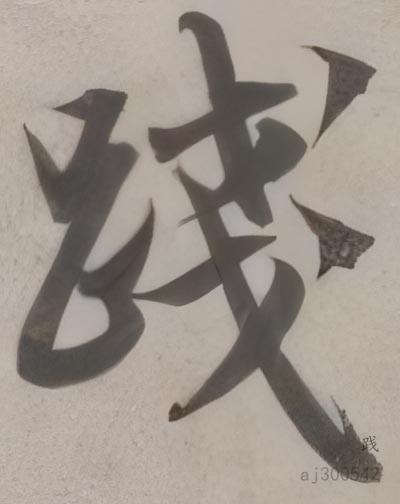 踐
践
aj300542